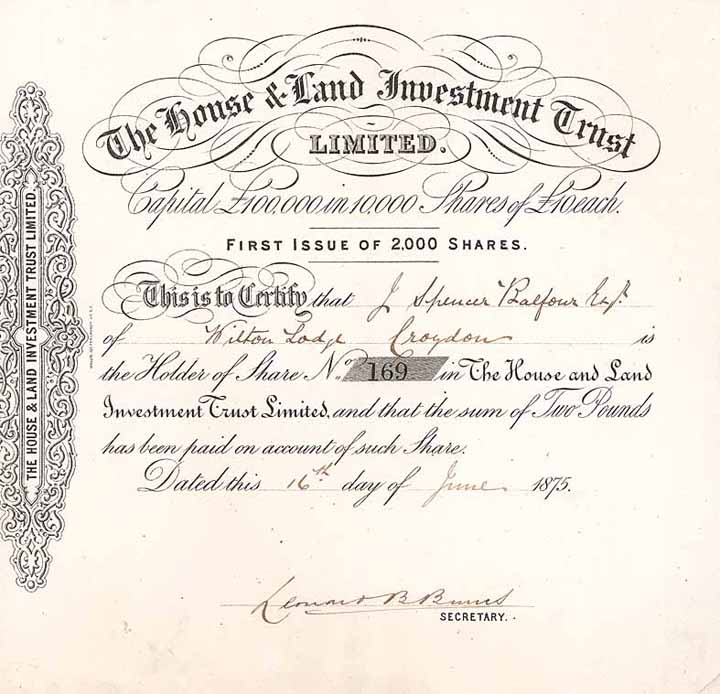 The House & Land Investment Trust
LIMITED.
Capital £100,000 in 10,000 Shares of £10 each.
FIRST ISSUE OF 2,000 SHARES.
This is to Certify that J Spencer Balfour Esqr.
of Wilton Lodge Croydon is
the Holder of Share No. 169 in The House and Land
Investment Trust Limited, and that the sum of Two Pounds
has been paid on account of such Share.
Dated this 16th day of June 1875.
Leonard B Burns
SECRETARY.
THE HOUSE & LAND INVESTMENT TRUST LIMITED.